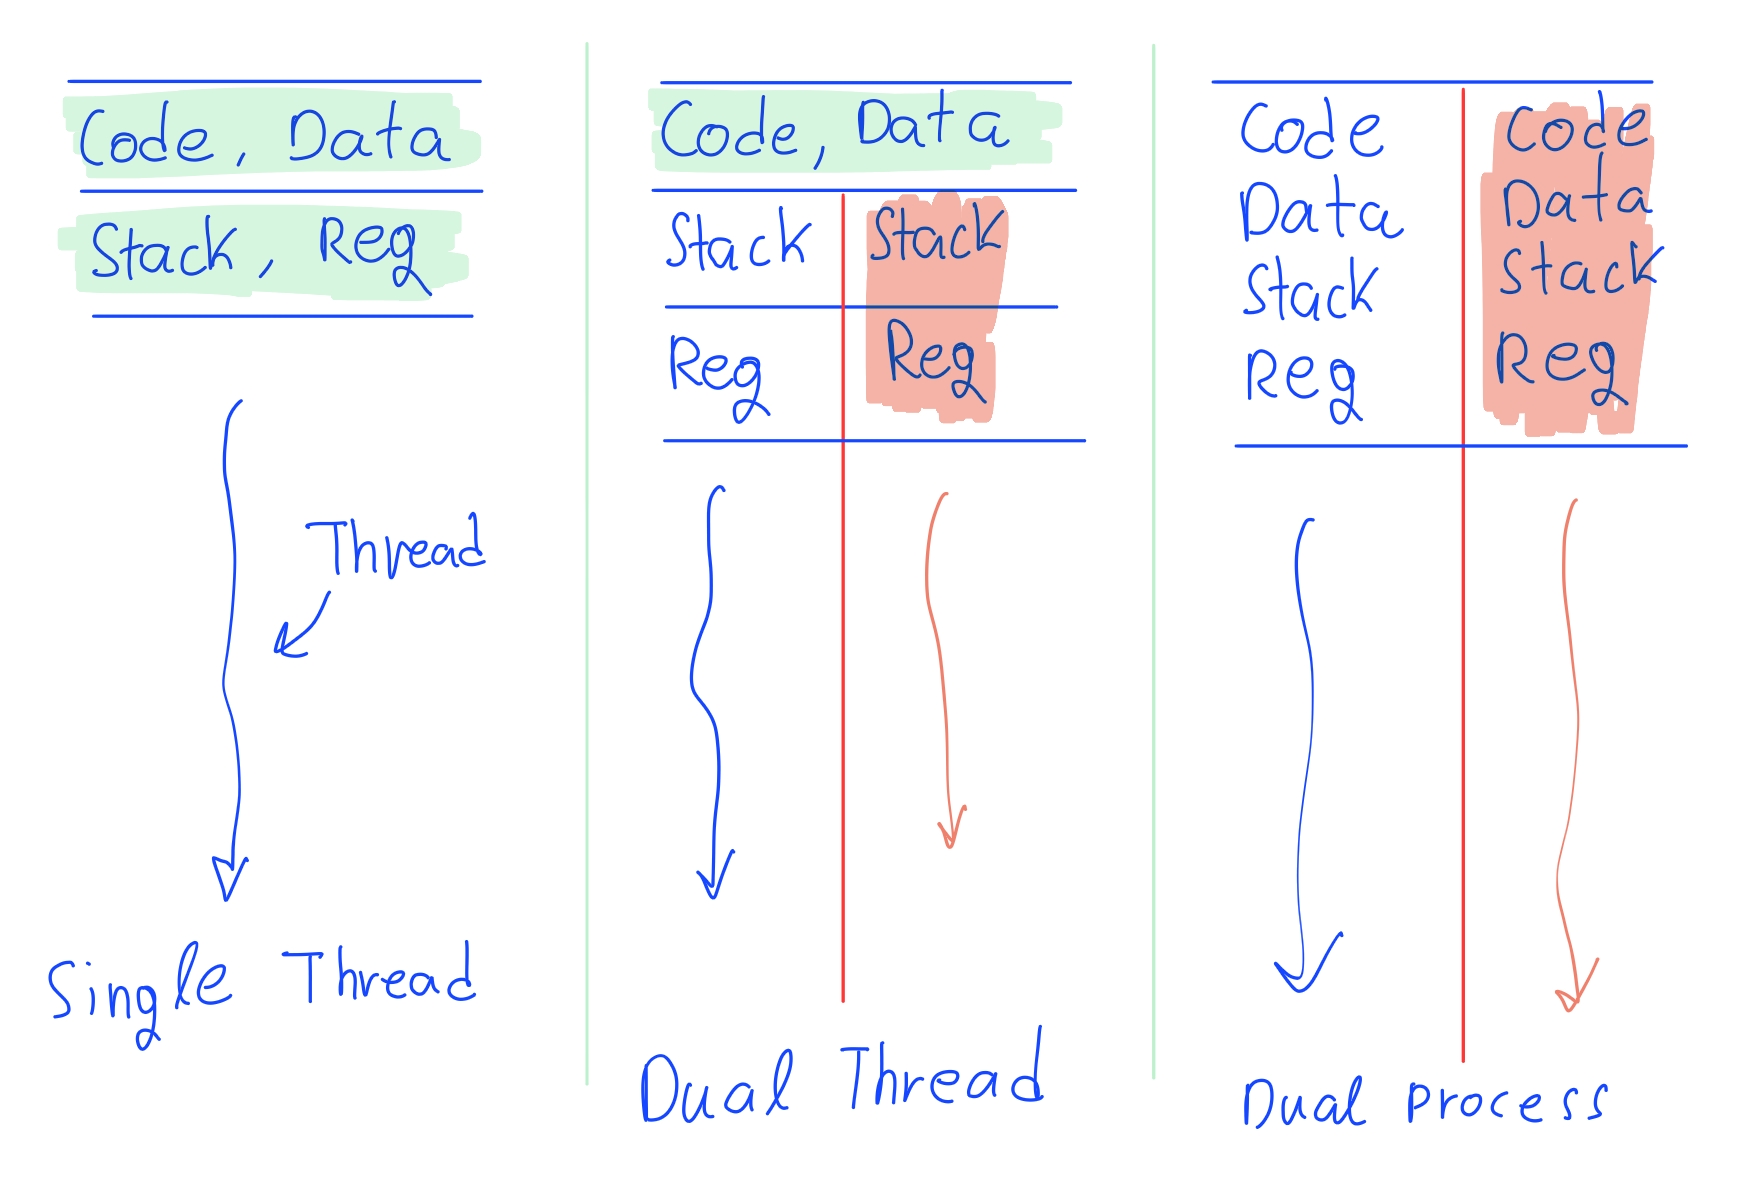 Code, Data
Stack, Reg
Thread
Single Thread
Code, Data
Stack Stack
Reg Reg
Dual Thread
Code Code
Data Data
Stack Stack
Reg Reg
Dual Process